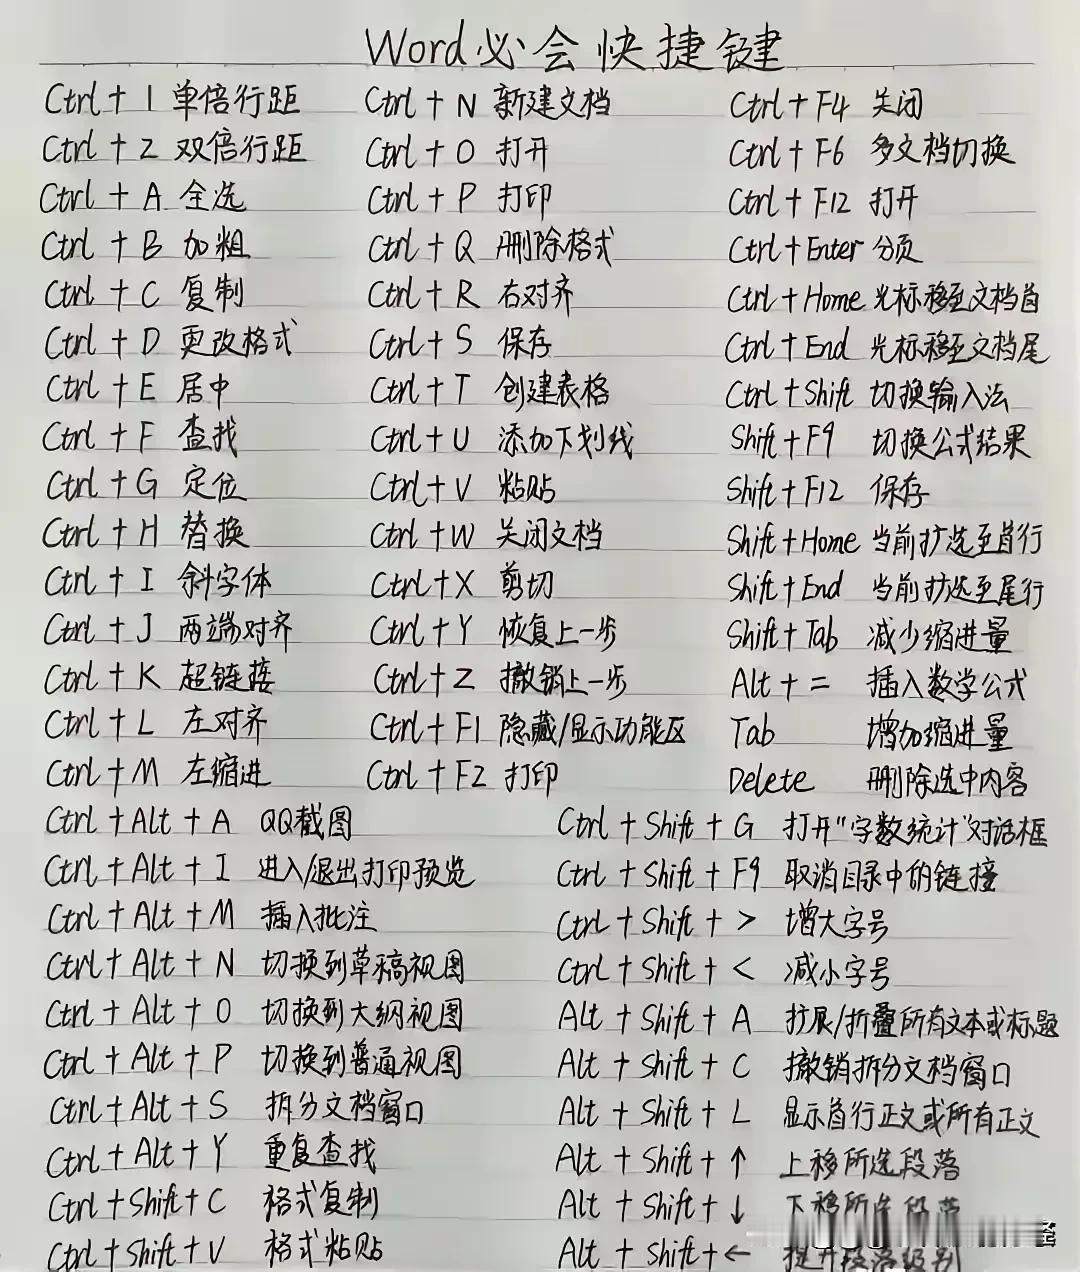 Word必会快捷键
Ctrl + 1 单倍行距 Ctrl + N 新建文档 Ctrl + F4 关闭
Ctrl + 2 双倍行距 Ctrl + O 打开 Ctrl + F6 多文档切换
Ctrl + A 全选 Ctrl + P 打印 Ctrl + F12 打开
Ctrl + B 加粗 Ctrl + Q 删除格式 Ctrl + Enter 分页
Ctrl + C 复制 Ctrl + R 右对齐 Ctrl + Home 光标移至文档首
Ctrl + D 更改格式 Ctrl + S 保存 Ctrl + End 光标移至文档尾
Ctrl + E 居中 Ctrl + T 创建表格 Ctrl + Shift 切换输入法
Ctrl + F 查找 Ctrl + U 添加下划线 Shift + F9 切换公式结果
Ctrl + G 定位 Ctrl + V 粘贴 Shift + F12 保存
Ctrl + H 替换 Ctrl + W 关闭文档 Shift + Home 当前扩选至首行
Ctrl + I 斜字体 Ctrl + X 剪切 Shift + End 当前扩选至尾行
Ctrl + J 两端对齐 Ctrl + Y 恢复上一步 Shift + Tab 减少缩进量
Ctrl + K 超链接 Ctrl + Z 撤销上一步 Alt + = 插入数学公式
Ctrl + L 左对齐 Ctrl + F1 隐藏/显示功能区 Tab 增加缩进量
Ctrl + M 左缩进 Ctrl + F2 打印 Delete 删除选中内容
Ctrl + Alt + A QQ截图 Ctrl + Shift + G 打开"字数统计"对话框
Ctrl + Alt + I 进入/退出打印预览 Ctrl + Shift + F9 取消目录中的链接
Ctrl + Alt + M 插入批注 Ctrl + Shift + > 增大字号
Ctrl + Alt + N 切换到草稿视图 Ctrl + Shift + < 减小字号
Ctrl + Alt + O 切换到大纲视图 Alt + Shift + A 扩展/折叠所有文本或标题
Ctrl + Alt + P 切换到普通视图 Alt + Shift + C 撤销拆分文档窗口
Ctrl + Alt + S 拆分文档窗口 Alt + Shift + L 显示首行正文或所有正文
Ctrl + Alt + Y 重复查找 Alt + Shift + ↑ 上移所选段落
Ctrl + Shift + C 格式复制 Alt + Shift + ↓ 下移所选段落
Ctrl + Shift + V 格式粘贴 Alt + Shift + ← 提升段落级别